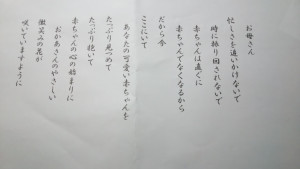 お母さん
忙しさを追いかけないで
時に振り回されないで
赤ちゃんは直ぐに
赤ちゃんでなくなるから
だから今
ここにいて
あなたの可愛い赤ちゃんを
たっぷり見つめて
たっぷり抱いて
赤ちゃんの心の始まりに
おかあさんのやさしい
微笑みの花が
咲いていますように